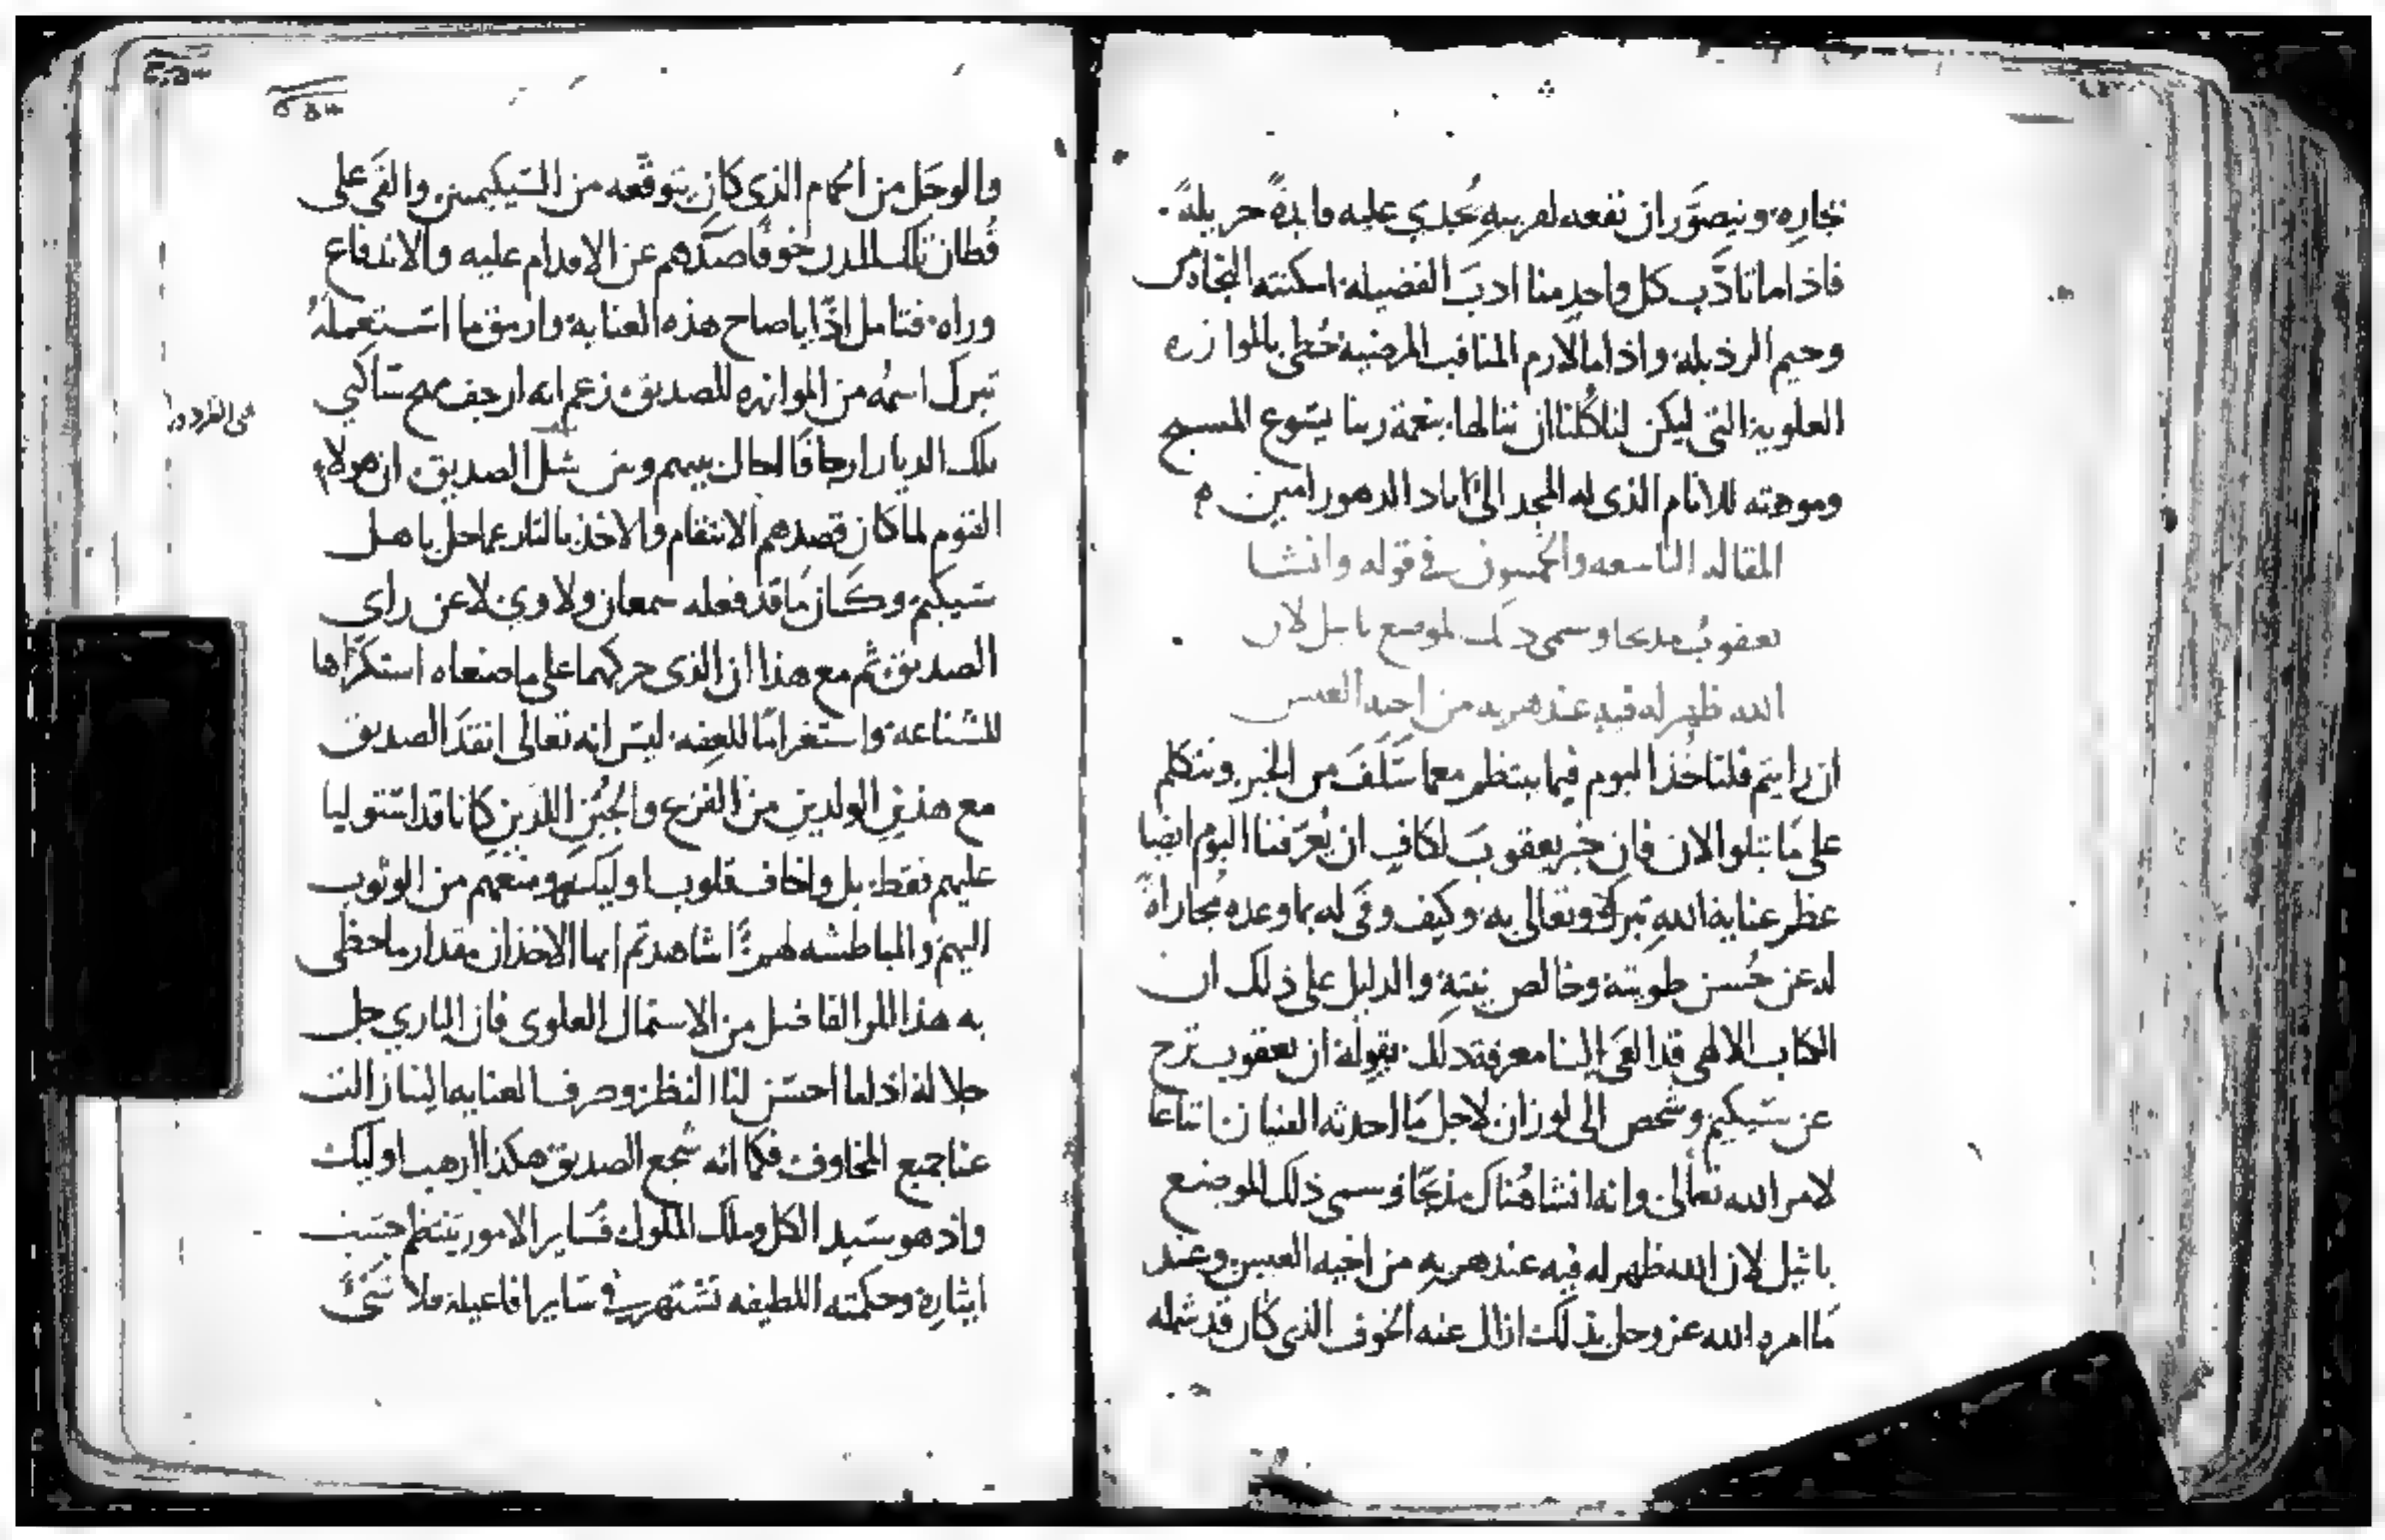 نجاره ويتصور ان نفعه لقريبه يجدي عليه فايدة جزيلة.
فاذا ما تادَّب كل واحدٍ منا ادبَ الفضيله اسكنته
وحيم الرذيله واذا ما لازم المناقب المرضية حُظى بالموازره
العلوية التي ليكن لنا كُلنا ان ننالها بنعمة ربنا يسوع المسيح
وموهبته للانام الذى له المجد الى اباد الدهور امين
المقاله التاسعه والخمسون في قوله وانشا
يعقوبُ مذبحا وسمى ذلك الموضع باثيل لان
الله ظهر له فيه عند هربه من اخيه العيس
ان رايتم فلناخُذ اليوم فيما ينتظم مع ما سَلَفَ من الخبر ونتكلم
على ما يتلوا الان فان خبر يعقوبَ لكافٍ ان يُعرّفنا اليوم ايضا
عظم عناية الله تبرك وتعالى به وكيف وفَى له بما وعده مجاراةً
له عن حُسن طويته وخالص نيته والدليل على ذلك ان
الكتاب الالهى قد القى الينا معرفة ذلك بقوله ان يعقوب نزح
عن سيكيم وشخص الى لوزان لاجل ما احدثه الفتيان اتباعا
لامر الله تعالى وانه انشا هُناك مذبحًا وسمى ذلك الموضع
باثيل لان الله ظهر له فيه عند هربهِ من اخيه العيس وعند
ما امره الله عز وجل بذلك ازال عنه الخوف الذى كان قد شمله
والوجَل من الحمام الذى كان يتوقعه من السيكيميين والقَى على
قُطان تلك المدن خوفًا صدَّهم عن الاقدام عليه والاندفاع
وراه فتامل اذًا يا صاح هذه العناية وارمق ما استعملهُ
تبرك اسمُه من الموازره للصديق زعم انه ارجف ساكني
تلك الديار ارجافًا احال بينهم وبين الصديق ان هولاء
القوم لما كان قصدهم الانتقام والاخذ بالثار عما حل باهل
سيكيم وكان ما قد فعله سمعان ولاوي لا عن راى
الصديق ثم مع هذا ان الذى حركهما على ما صنعاه استكراها
للشناعه واستغرامًا للعفه ليس انه تعالى انقذَ الصديق
مع هذين الولدين من الفزع والجُبن اللذين كانا قد استوليا
عليهم فقط بل واخاف قلوب اوليك ومنعهم من الوثوب
اليهم والمباطشه لهم اشاهدتم ايها الاخذان مقدار ما حظى
به هذا المر الفاضل من الاستمال العلوى فان البارى جل
جلاله اذا ما احسن لنا النظر وصرف العناية الينا زالت
عنا جميع المخاوف فكما انه شجع الصديق هكذا ارهب اوليك
واذ هو سيد الكل وملك الملوك فساير الامور ينتظم حسب
ايثاره وحكمته اللطيفه تشتهر في ساير افاعيله فلا شىءٌ